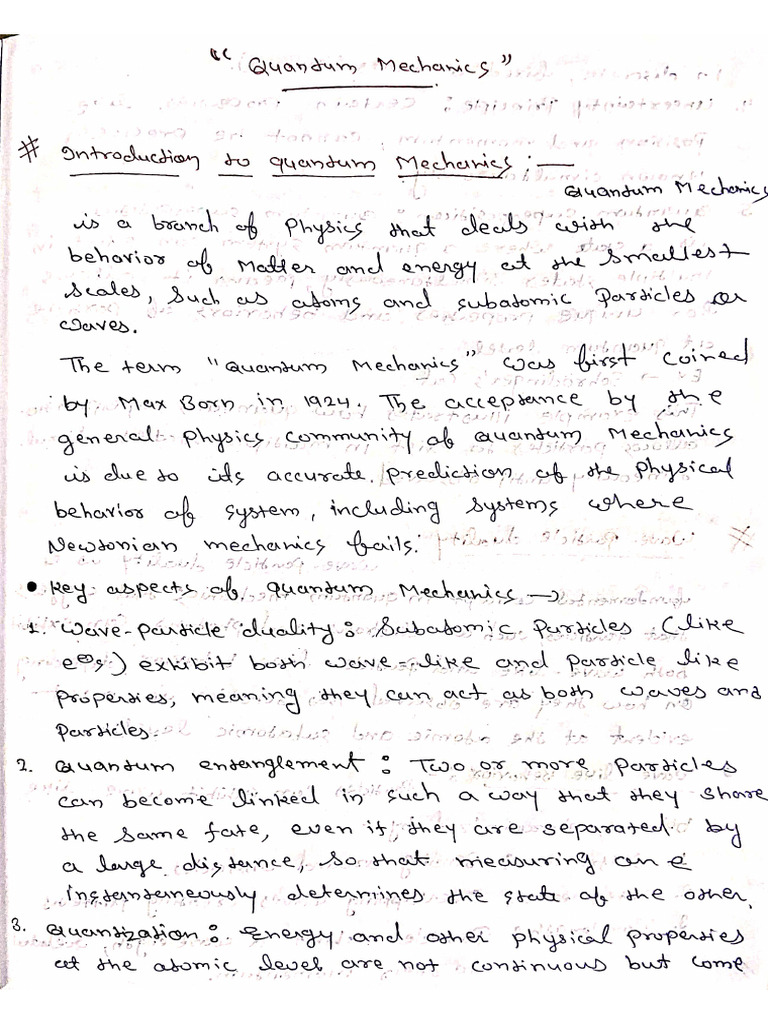 "Quantum Mechanics"
# Introduction to quantum Mechanics :—
Quantum Mechanics
is a branch of Physics that deals with the
behavior of Matter and energy at the smallest
scales, such as atoms and subatomic Particles or
waves.
The term "Quantum Mechanics" was first coined
by Max Born in 1924. The acceptance by the
general physics community of Quantum Mechanics
is due to its accurate prediction of the Physical
behavior of system, including systems where
Newtonian mechanics fails.
• Key aspects of quantum Mechanics →
1. Wave-Particle duality : Subatomic Particles (like
e⊖s) exhibit both wave-like and Particle like
Properties, meaning they can act as both waves and
Particles.
2. Quantum entanglement : Two or more Particles
can become linked in such a way that they share
the same fate, even if they are separated by
a large distance, so that measuring one
instanteneously determines the state of the other.
3. Quantization : Energy and other physical properties
at the atomic level are not continuous but come